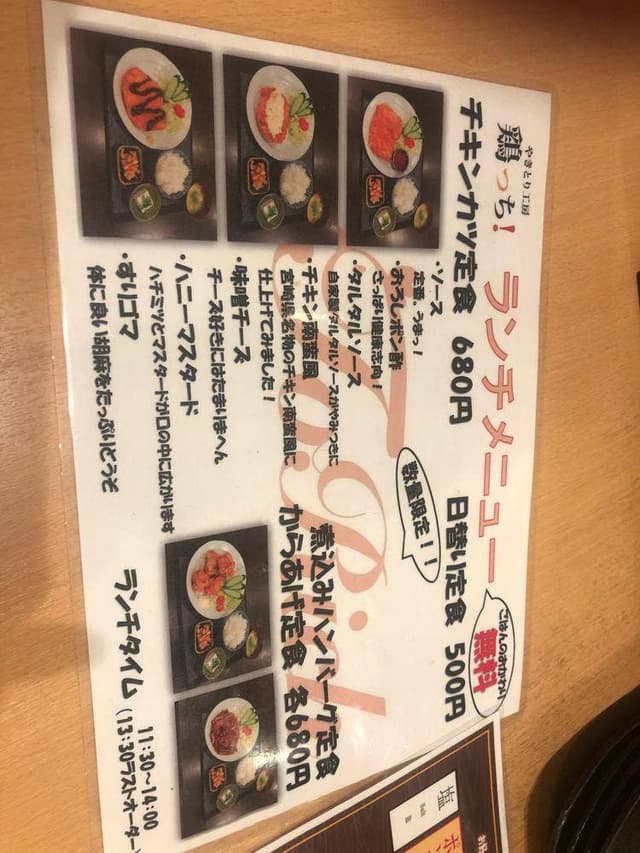 やきとり工房
鶏っち!
ランチメニュー
ごはんのおかわり!
無料
チキンカツ定食 680円
・ソース
定番!うまっ!
・おろしポン酢
さっぱり健康志向!
・タルタルソース
自家製タルタルソースがやみつきに
・チキン南蛮風
宮崎県名物のチキン南蛮風に
仕上げてみました!
・味噌チーズ
チーズ好きにはたまりまへん
・ハニーマスタード
ハチミツとマスタードが口の中に広がります
・すりゴマ
体に良い胡麻をたっぷりどうぞ
日替り定食 500円
数量限定!!
煮込みハンバーグ定食
からあげ定食 各680円
ランチタイム 11:30~14:00
(13:30ラストオーダー)
塩